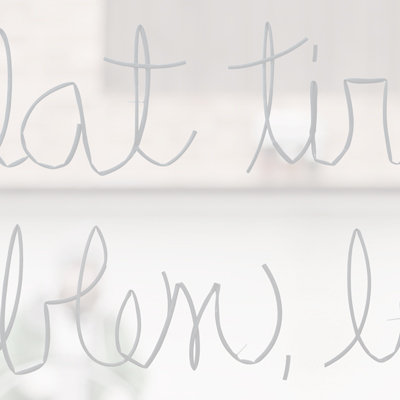 lat tir
blem, l